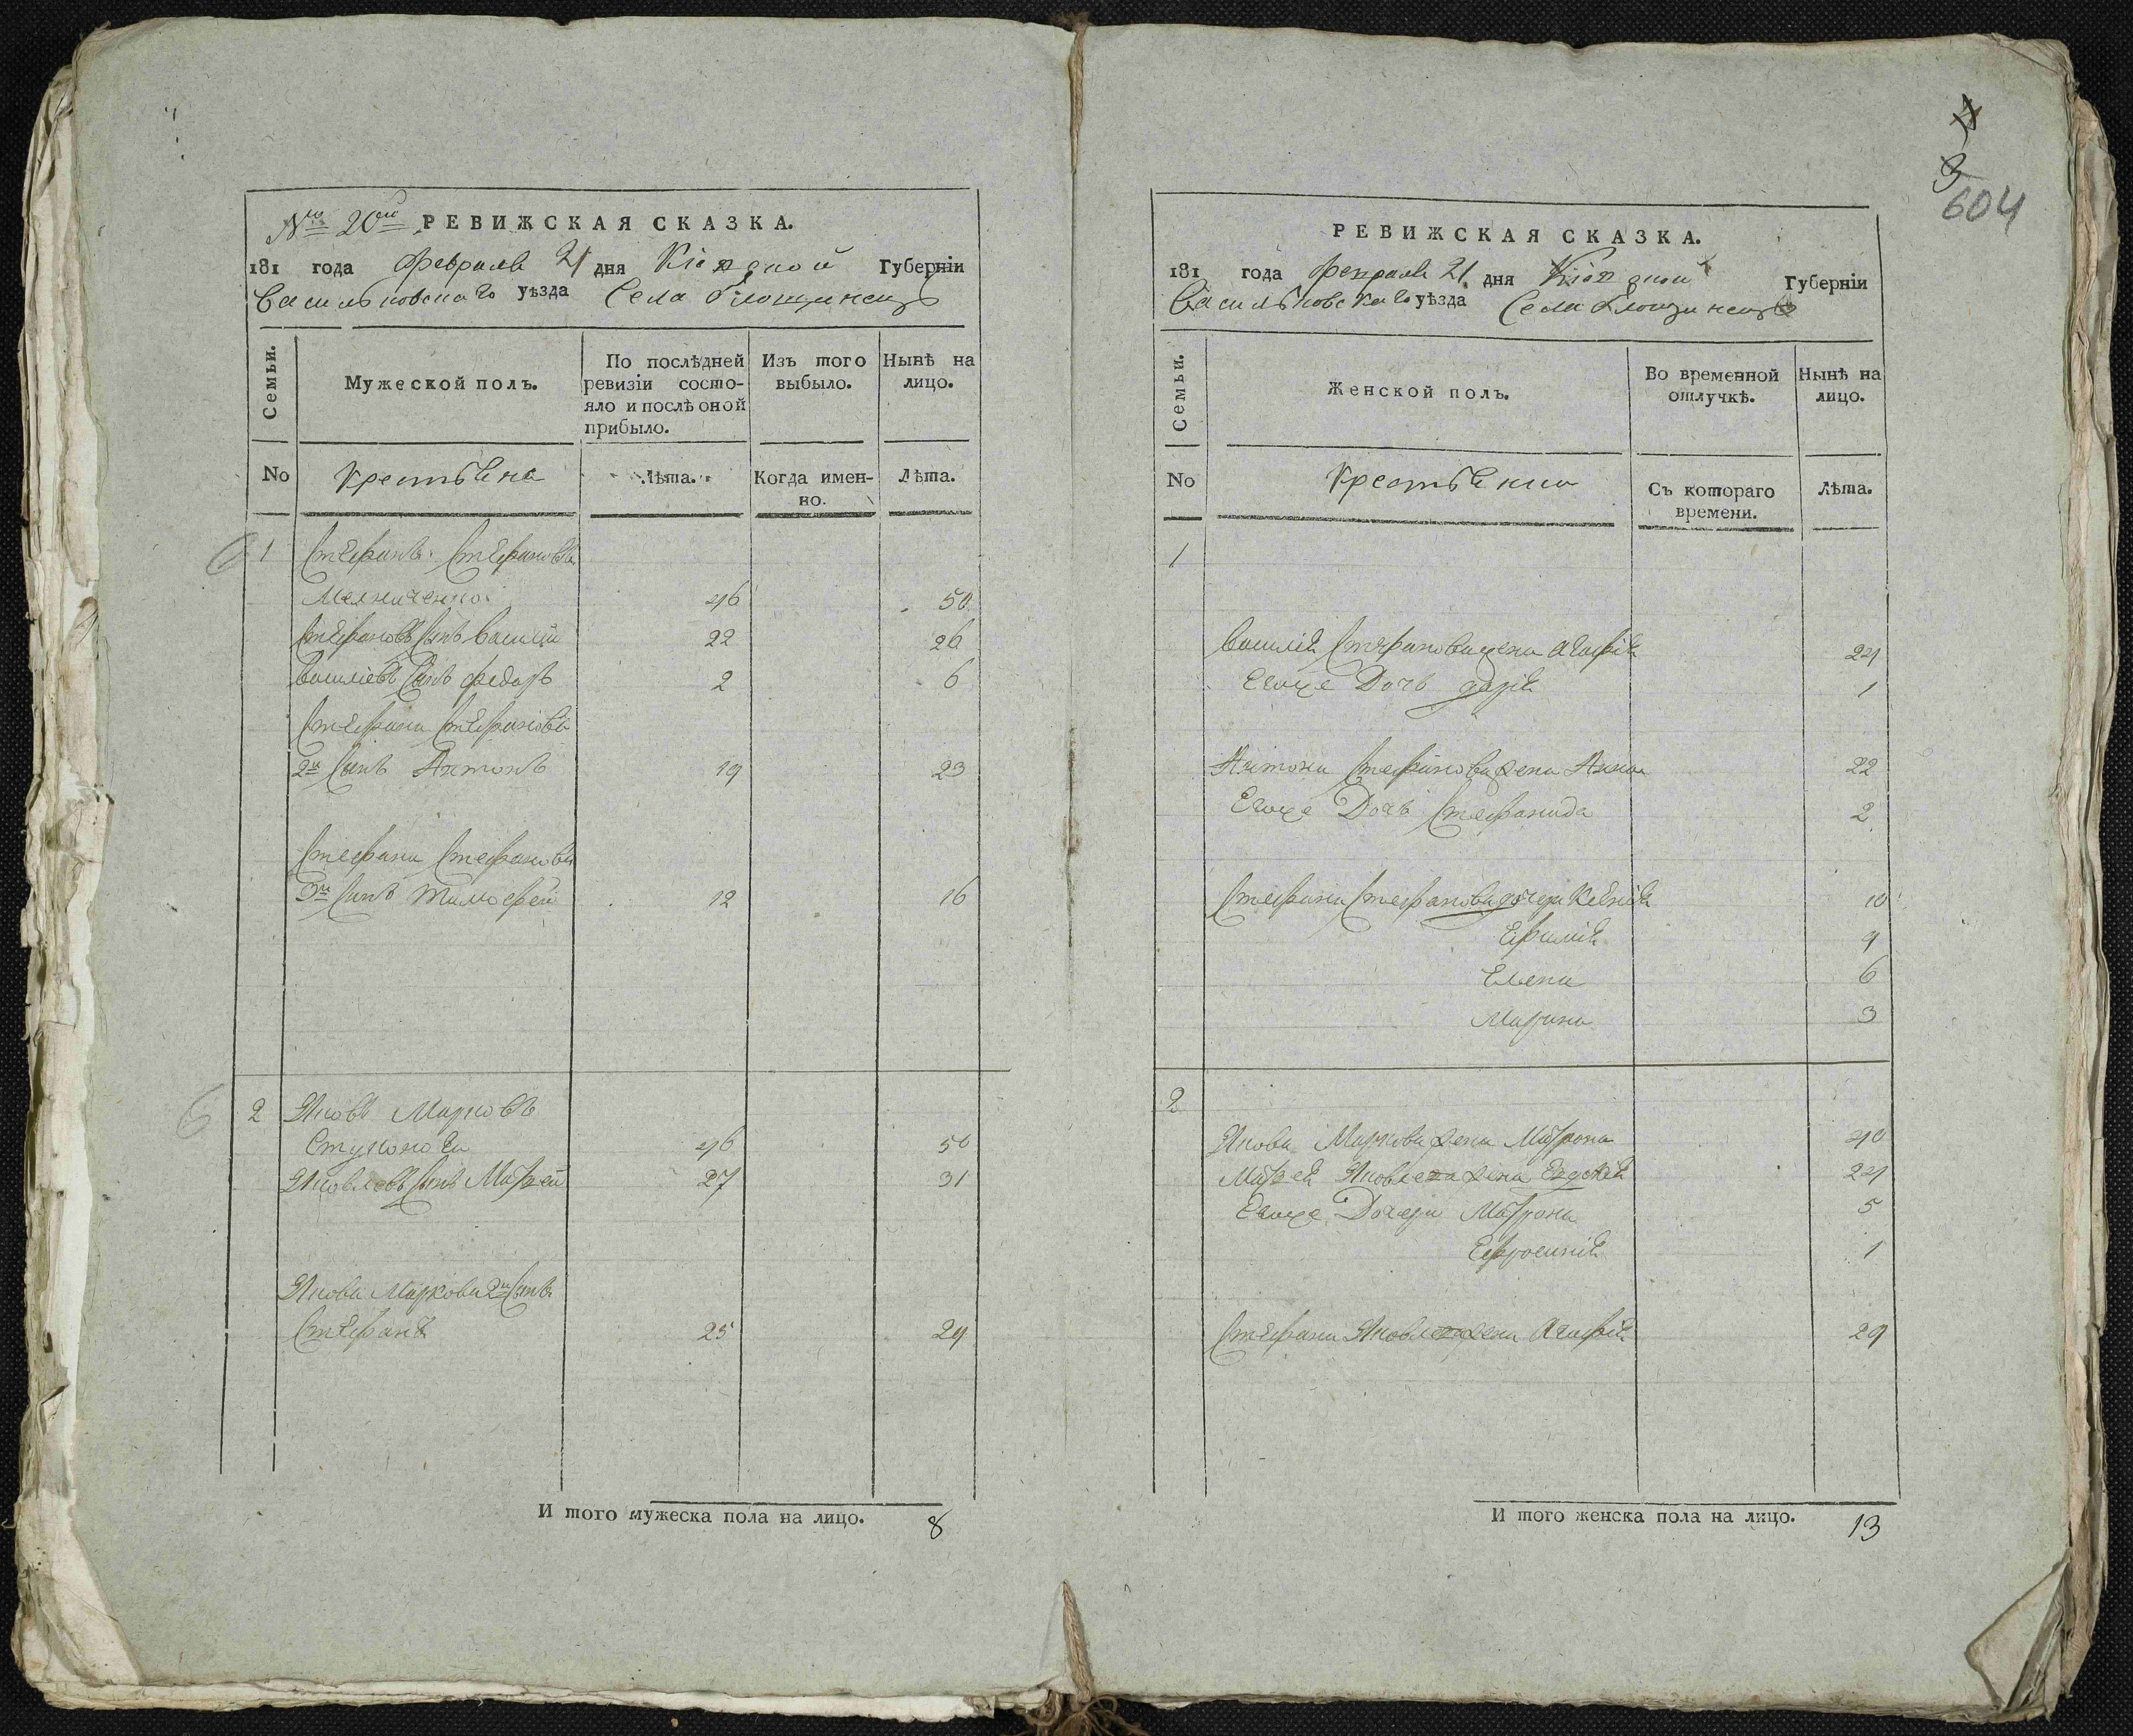 № 20й РЕВИЖСКАЯ СКАЗКА.
181 года Февраля 21 дня Кіевской Губерніи
Васильковскаго уѣзда Села
Семьи.
Мужеской полъ.
По послѣдней ревизіи состо-
яло и послѣ оной
прибыло.
Изъ того
выбыло.
Нынѣ на
лицо.
No
Крестьяне
Лѣта.
Когда имен-
но.
Лѣта.
1 Стефанъ Стефановъ
Мелниченко 46 50
Стефановъ Сынъ Василій 22 26
Василіевъ Сынъ Федоръ 2 6
Стефана Стефанова
2й Сынъ Антонъ 19 23
Стефана Стефанова
3й Сынъ Тимофей 12 16
2 Яковъ Марковъ
46 50
Яковлевъ Сынъ Матвей 27 31
Якова Маркова 2й Сынъ
Стефанъ 25 29
И того мужеска пола на лицо. 8
3
604
РЕВИЖСКАЯ СКАЗКА.
181 года Февраля 21 дня Кіевской Губерніи
Васильковскаго уѣзда Села
Семьи.
Женской полъ.
Во временной
отлучкѣ.
Нынѣ на
лицо.
No
Крестьянки
Съ котораго
времени.
Лѣта.
1
Василія Стефанова жена Агафія 24
Егоже Дочь Дарія 1
Антона Стефанова жена Анна 22
Егоже Дочь Стефанида 2
Стефана Стефанова дочери Ксенія 10
Ефимія 9
Елена 6
Марина 3
2
Якова Маркова жена Матрона 40
Матвея Яковлева жена Евдокія 24
Егоже Дочери Матрона 5
Ефросинія 1
Стефана Яковлева жена Агафія 29
И того женска пола на лицо. 13